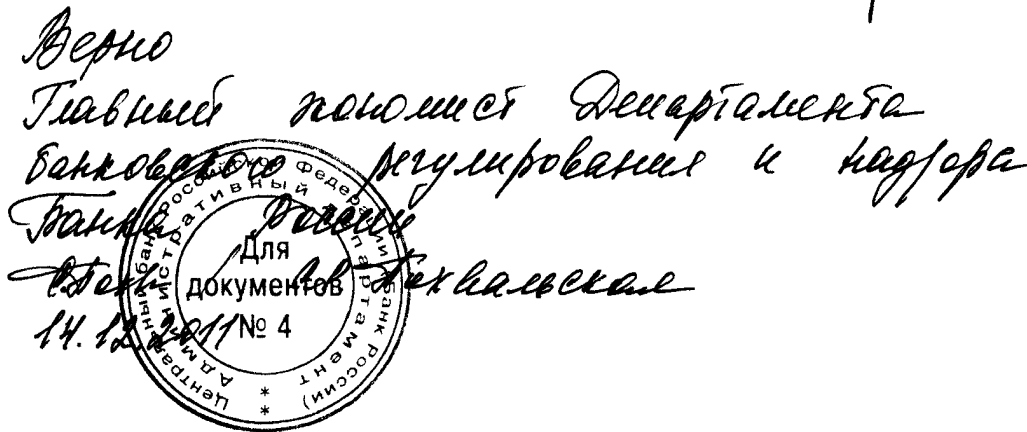 Верно
Главный экономист Департамента
банковского регулирования и надзора
Банка России
Похвальская
14.12.2011
Центральный банк Российской Федерации (Банк России)
Административный департамент
Для
документов
№ 4
* *